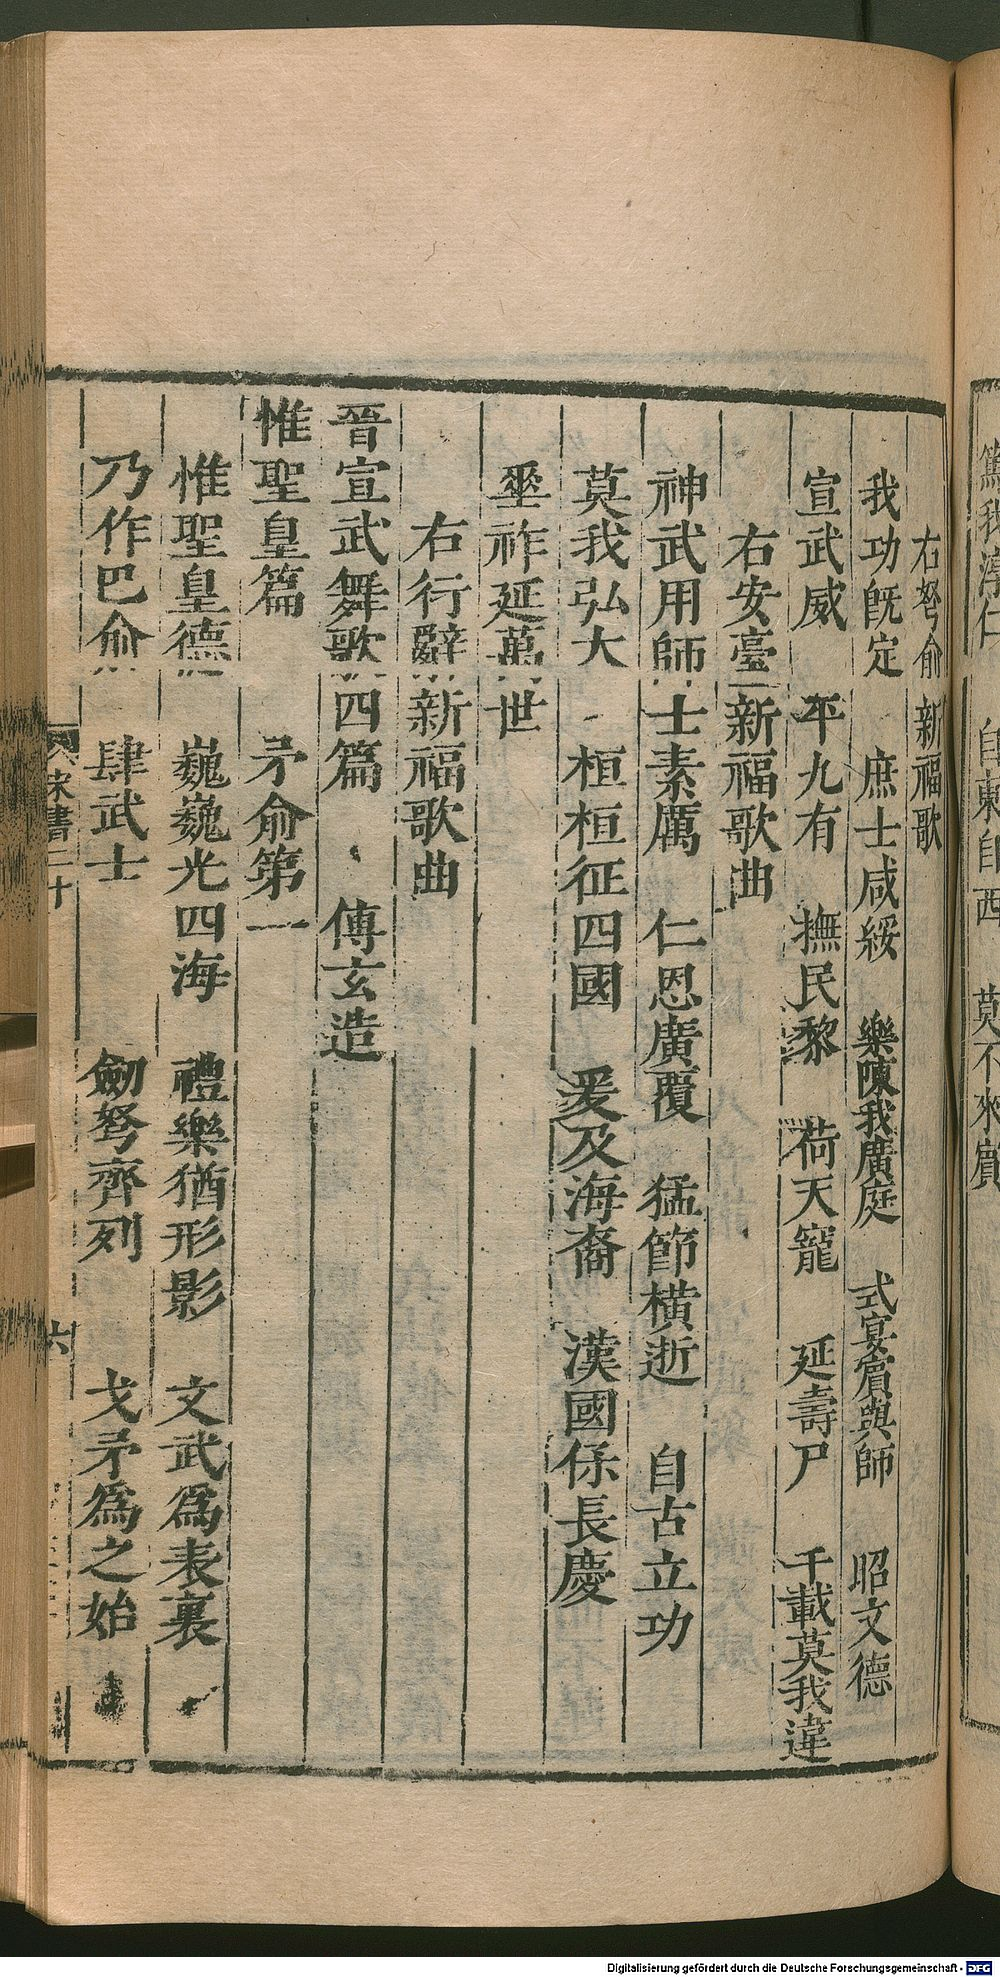 篤我淳仁　自東自西　莫不來賓
右弩俞新福歌
我功旣定　庶士咸綏　樂陳我廣庭　式宴賓與師　昭文德
宣武威　平九有　撫民黎　荷天寵　延壽尸　千載莫我違
右安臺新福歌曲
神武用師士素厲　仁恩廣覆　猛節橫逝　自古立功
莫我弘大　桓桓征四國　爰及海裔　漢國保長慶
垂祚延萬世
右行辭新福歌曲
晉宣武舞歌四篇　傅玄造
惟聖皇篇　矛俞第一
惟聖皇德　巍巍光四海　禮樂猶形影　文武爲表裏
乃作巴俞　肆武士　劒弩齊列　戈矛爲之始
宋書二十　六
Digitalisierung gefördert durch die Deutsche Forschungsgemeinschaft - DFG